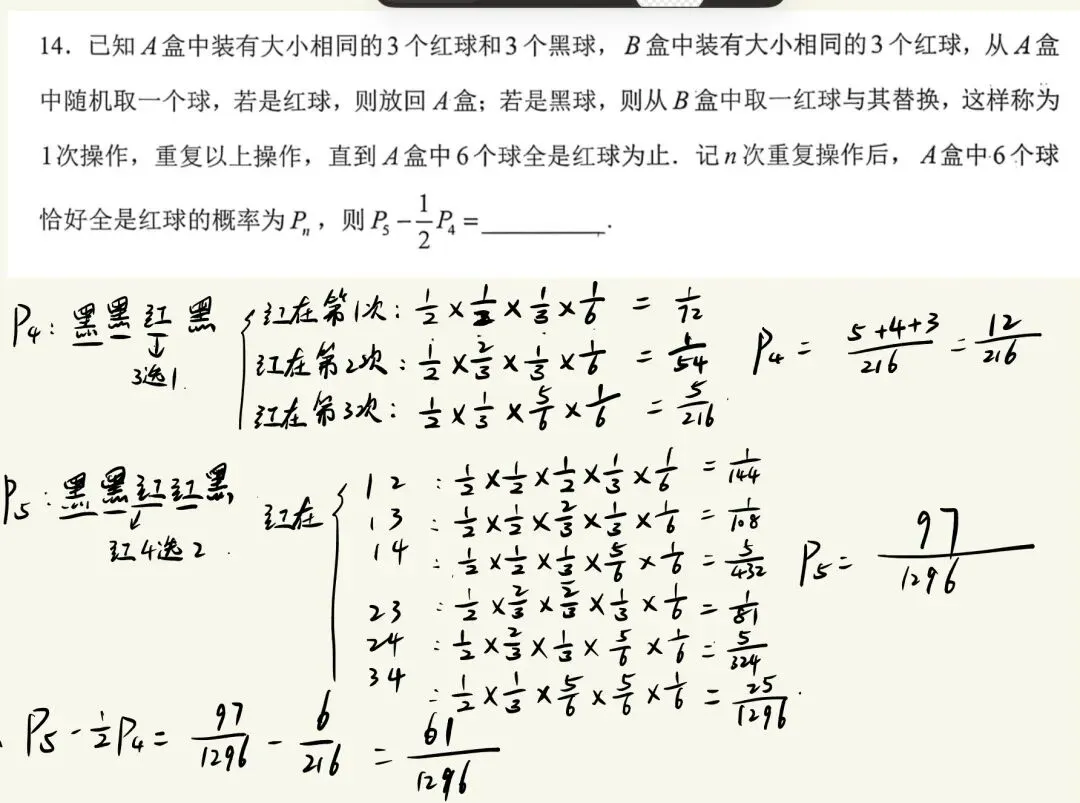 14．已知 A 盒中装有大小相同的 3 个红球和 3 个黑球，B 盒中装有大小相同的 3 个红球，从 A 盒
中随机取一个球，若是红球，则放回 A 盒；若是黑球，则从 B 盒中取一红球与其替换，这样称为
1 次操作，重复以上操作，直到 A 盒中 6 个球全是红球为止．记 n 次重复操作后，A 盒中 6 个球
恰好全是红球的概率为 Pₙ，则 P₅ − 1/2 P₄ = ________．
P₄：黑黑红 黑
3选1.
红在第1次：1/2 × 1/2 × 1/3 × 1/6 = 1/72
红在第2次：1/2 × 2/3 × 1/3 × 1/6 = 1/54
红在第3次：1/2 × 1/3 × 5/6 × 1/6 = 5/216
P₄ = (5+4+3)/216 = 12/216
P₅：黑黑红红黑
红4选2.
红在
12：1/2 × 1/2 × 1/2 × 1/3 × 1/6 = 1/144
13：1/2 × 1/2 × 2/3 × 1/3 × 1/6 = 1/108
14：1/2 × 1/2 × 1/3 × 5/6 × 1/6 = 5/432
23：1/2 × 2/3 × 2/3 × 1/3 × 1/6 = 1/81
24：1/2 × 2/3 × 1/3 × 5/6 × 1/6 = 5/324
34：1/2 × 1/3 × 5/6 × 5/6 × 1/6 = 25/1296
P₅ = 97/1296
P₅ - 1/2 P₄ = 97/1296 - 6/216 = 61/1296